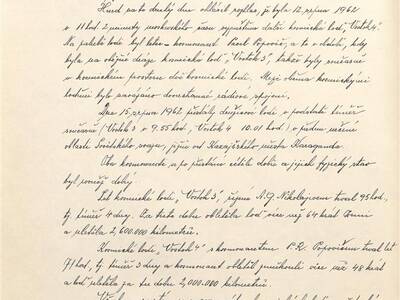 Hned na to druhý den ohlásil rozhlas, že byla 12. srpna 1962
v 11 hod 2 minuty moskevského času vypuštěna další kosmická loď „Vostok 4".
Na palubě lodi byl letec - kosmonaut Pavel Popovič, a to v době, kdy
byla na oběžné dráze kosmická loď „Vostok 3", takže byly současně
v kosmickém prostoru dvě kosmické lodi. Mezi oběma kosmickými
loděmi bylo navázáno dvoustranné rádiové spojení.
Dne 15. srpna 1962 přistály družicové lodi v podstatě téměř
současně (Vostok 3 v 9.55 hod, Vostok 4 10.01 hod) v předem určené
oblasti Sovětského svazu, jižně od Karagandy.
Oba kosmonauti se po přistání cítili dobře a jejich fyzický stav
byl rovněž dobrý.
Let kosmické lodi „Vostok 3", řízené A. G. Nikolajevem trval 95 hod,
tj. téměř 4 dny. Za tuto dobu obletěla loď více než 64 krát Zemi
a uletěla 2,600.000 kilometrů.
Kosmická loď „Vostok 4" s kosmonautem P. R. Popovičem trval let
71 hod, tj. téměř 3 dny a kosmonaut obletěl zeměkouli více než 48 krát
a loď uletěla za tři dny 2,000.000 kilometrů.